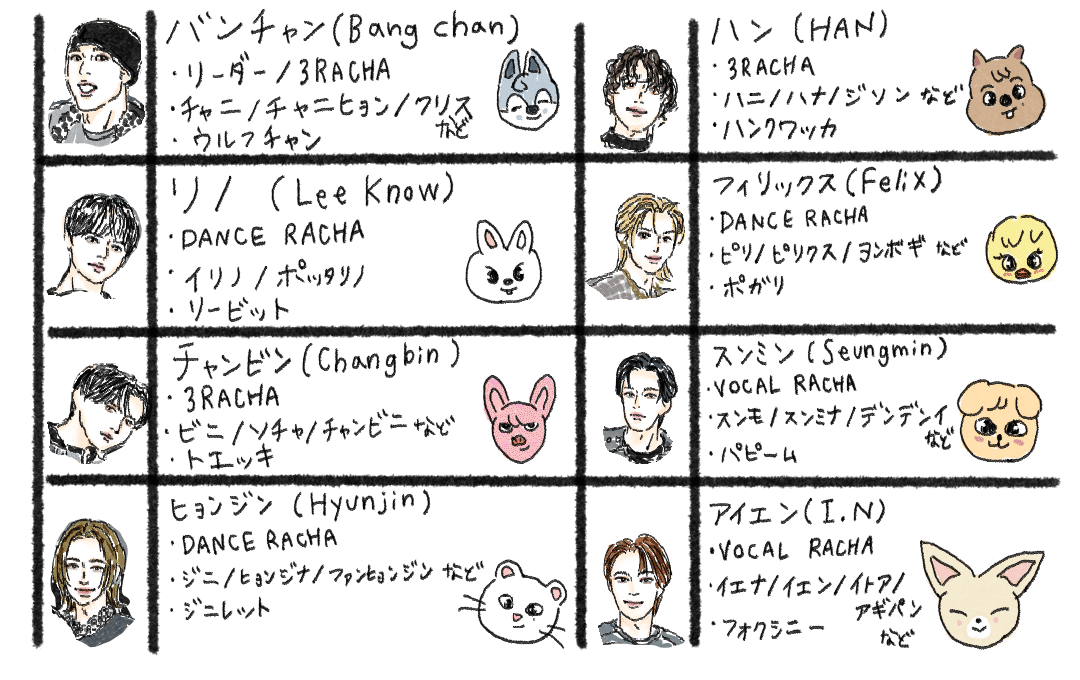 バンチャン(Bang chan)
・リーダー/3RACHA
・チャニ/チャニヒョン/クリス
など
・ウルフチャン
リノ (Lee Know)
・DANCE RACHA
・イリノ/ポッタリノ
・リービット
チャンビン(Changbin)
・3RACHA
・ビニ/ソチャ/チャンビニ など
・トエッキ
ヒョンジン (Hyunjin)
・DANCE RACHA
・ジニ/ヒョンジナ/ファンヒョンジン など
・ジニレット
ハン (HAN)
・3RACHA
・ハニ/ハナ/ジソン など
・ハンクワッカ
フィリックス(Felix)
・DANCE RACHA
・ピリ/ピリクス/ヨンボギ など
・ポガリ
スンミン(Seungmin)
・VOCAL RACHA
・スンモ/スンミナ/デンデンイ
など
・パピーム
アイエン(I.N)
・VOCAL RACHA
・イエナ/イエン/イトア/
アギパン
など
・フォクシニー